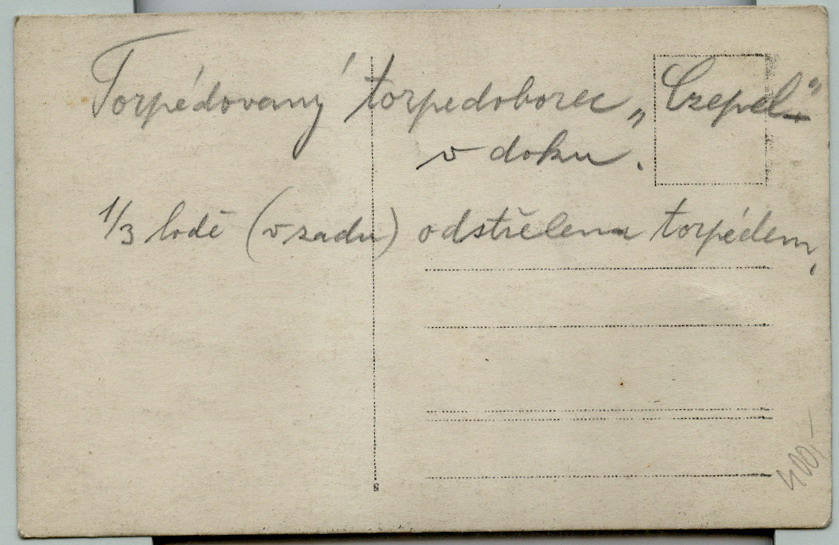 Torpédovaný torpedoborec „Czepel“
v doku.
1/3 lodě (vzadu) odstřelena torpédem,
400,-
8